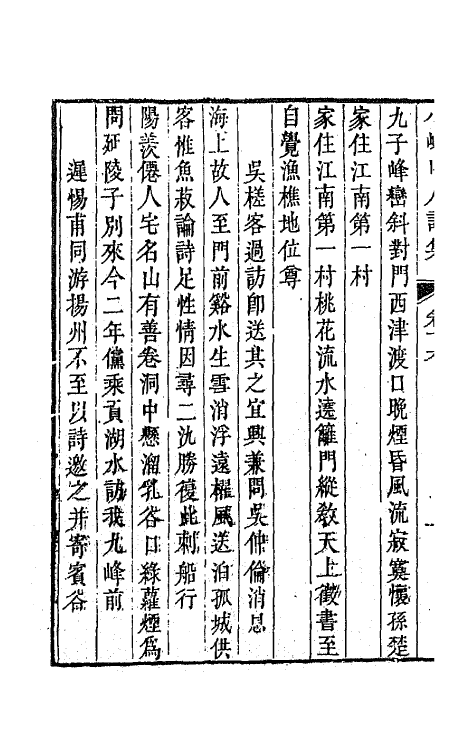 小峴山人詩集 卷
九子峰巒斜對門西津渡口晩煙昏風流寂寞懷孫楚
家住江南第一村
家住江南第一村桃花流水遶籬門縱敎天上徵書至
自覺漁樵地位尊
吳槎客過訪卽送其之宜興兼問吳仲倫消息
海上故人至門前谿水生雪消浮遠櫂風送泊孤城供
客惟魚菽論詩足性情因尋二氿勝復此刺船行
陽羨僊人宅名山有善卷洞中懸溜乳谷口綠蘿煙爲
問延陵子別來今二年儻乘貢湖水訪我九峰前
遲惕甫同游揚州不至以詩邀之并寄賓谷